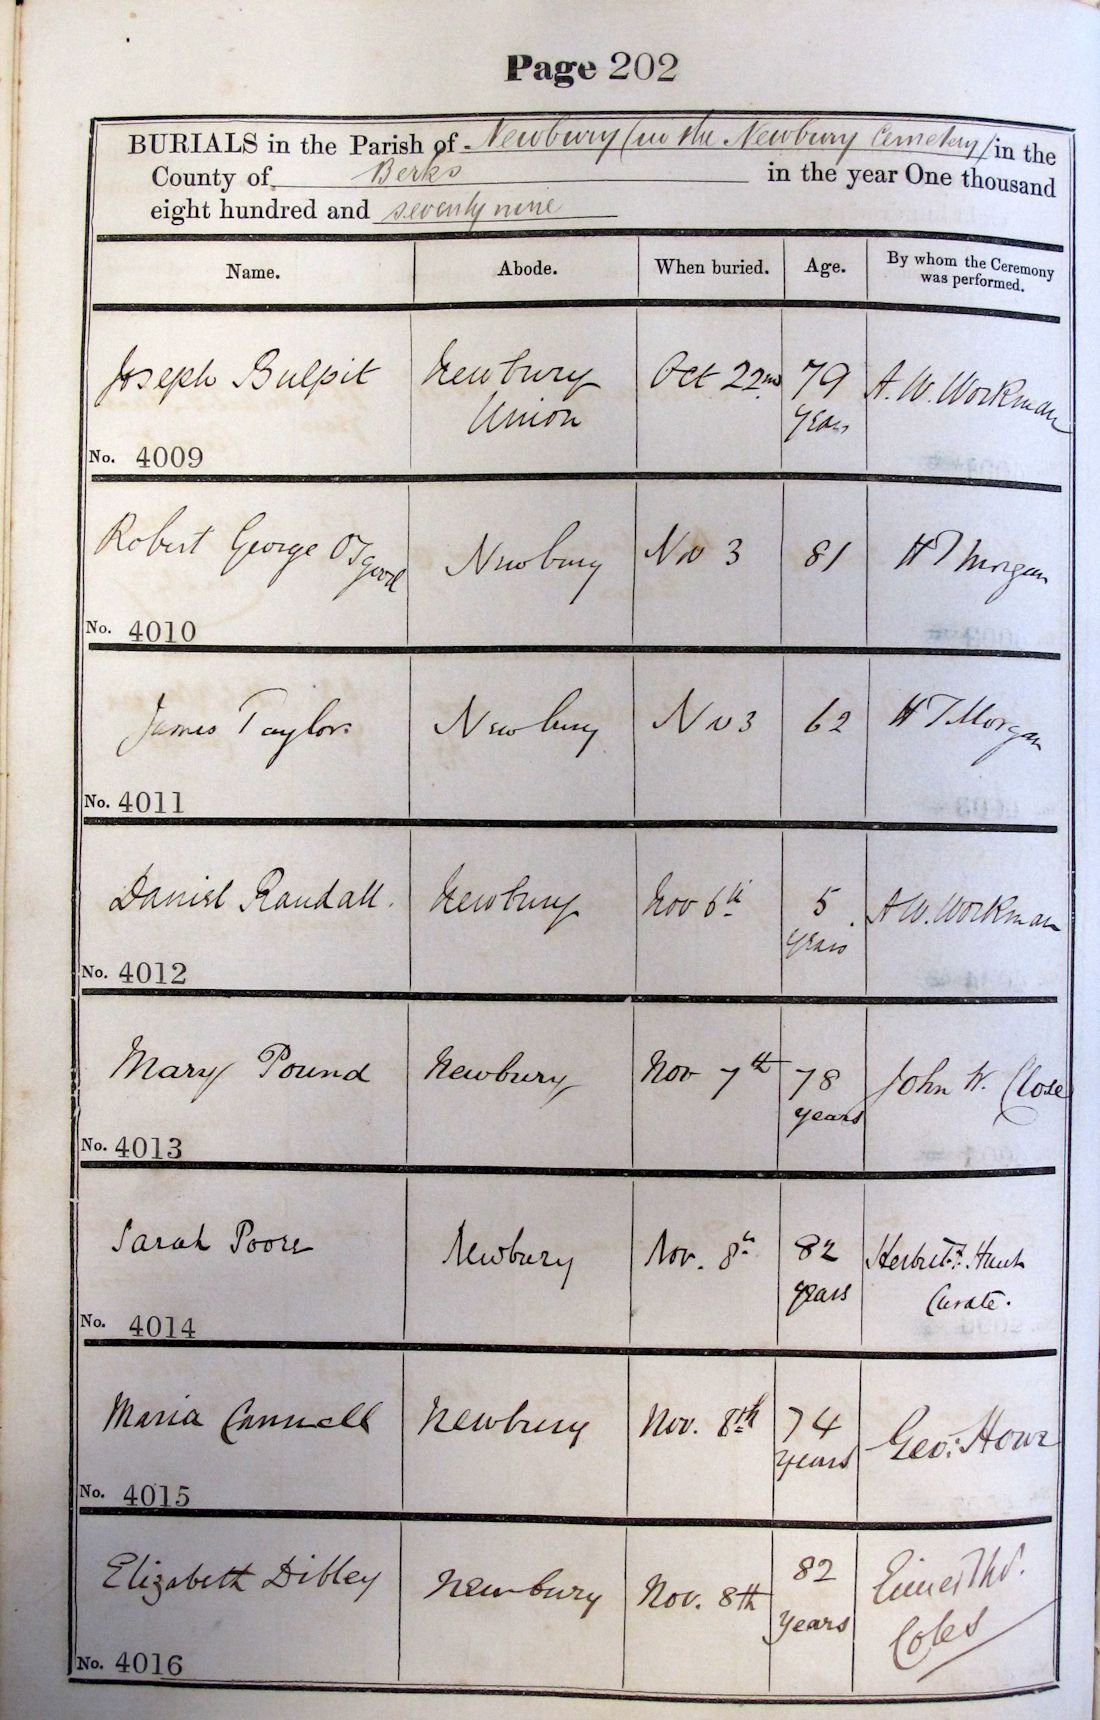 Page 202
BURIALS in the Parish of Newbury (in the Newbury Cemetery) in the
County of Berks in the year One thousand
eight hundred and seventy nine
Name. Abode. When buried. Age. By whom the Ceremony
was performed.
Joseph Bulpit Newbury Oct 22nd 79 A. W. Workman
Union years
No. 4009
Robert George Osgood Newbury Nov 3 81 H T Morgan
No. 4010
James Taylor Newbury Nov 3 62 H T Morgan
No. 4011
Daniel Randall. Newbury Nov 6th 5 A W. Workman
years
No. 4012
Mary Pound Newbury Nov 7th 78 John W. Close
years
No. 4013
Sarah Poore Newbury Nov. 8th 82 Hunt
years Curate.
No. 4014
Maria Cannell Newbury Nov. 8th 74 Geo: Howe
years
No. 4015
Elizabeth Dibley Newbury Nov. 8th 82
years Coles
No. 4016